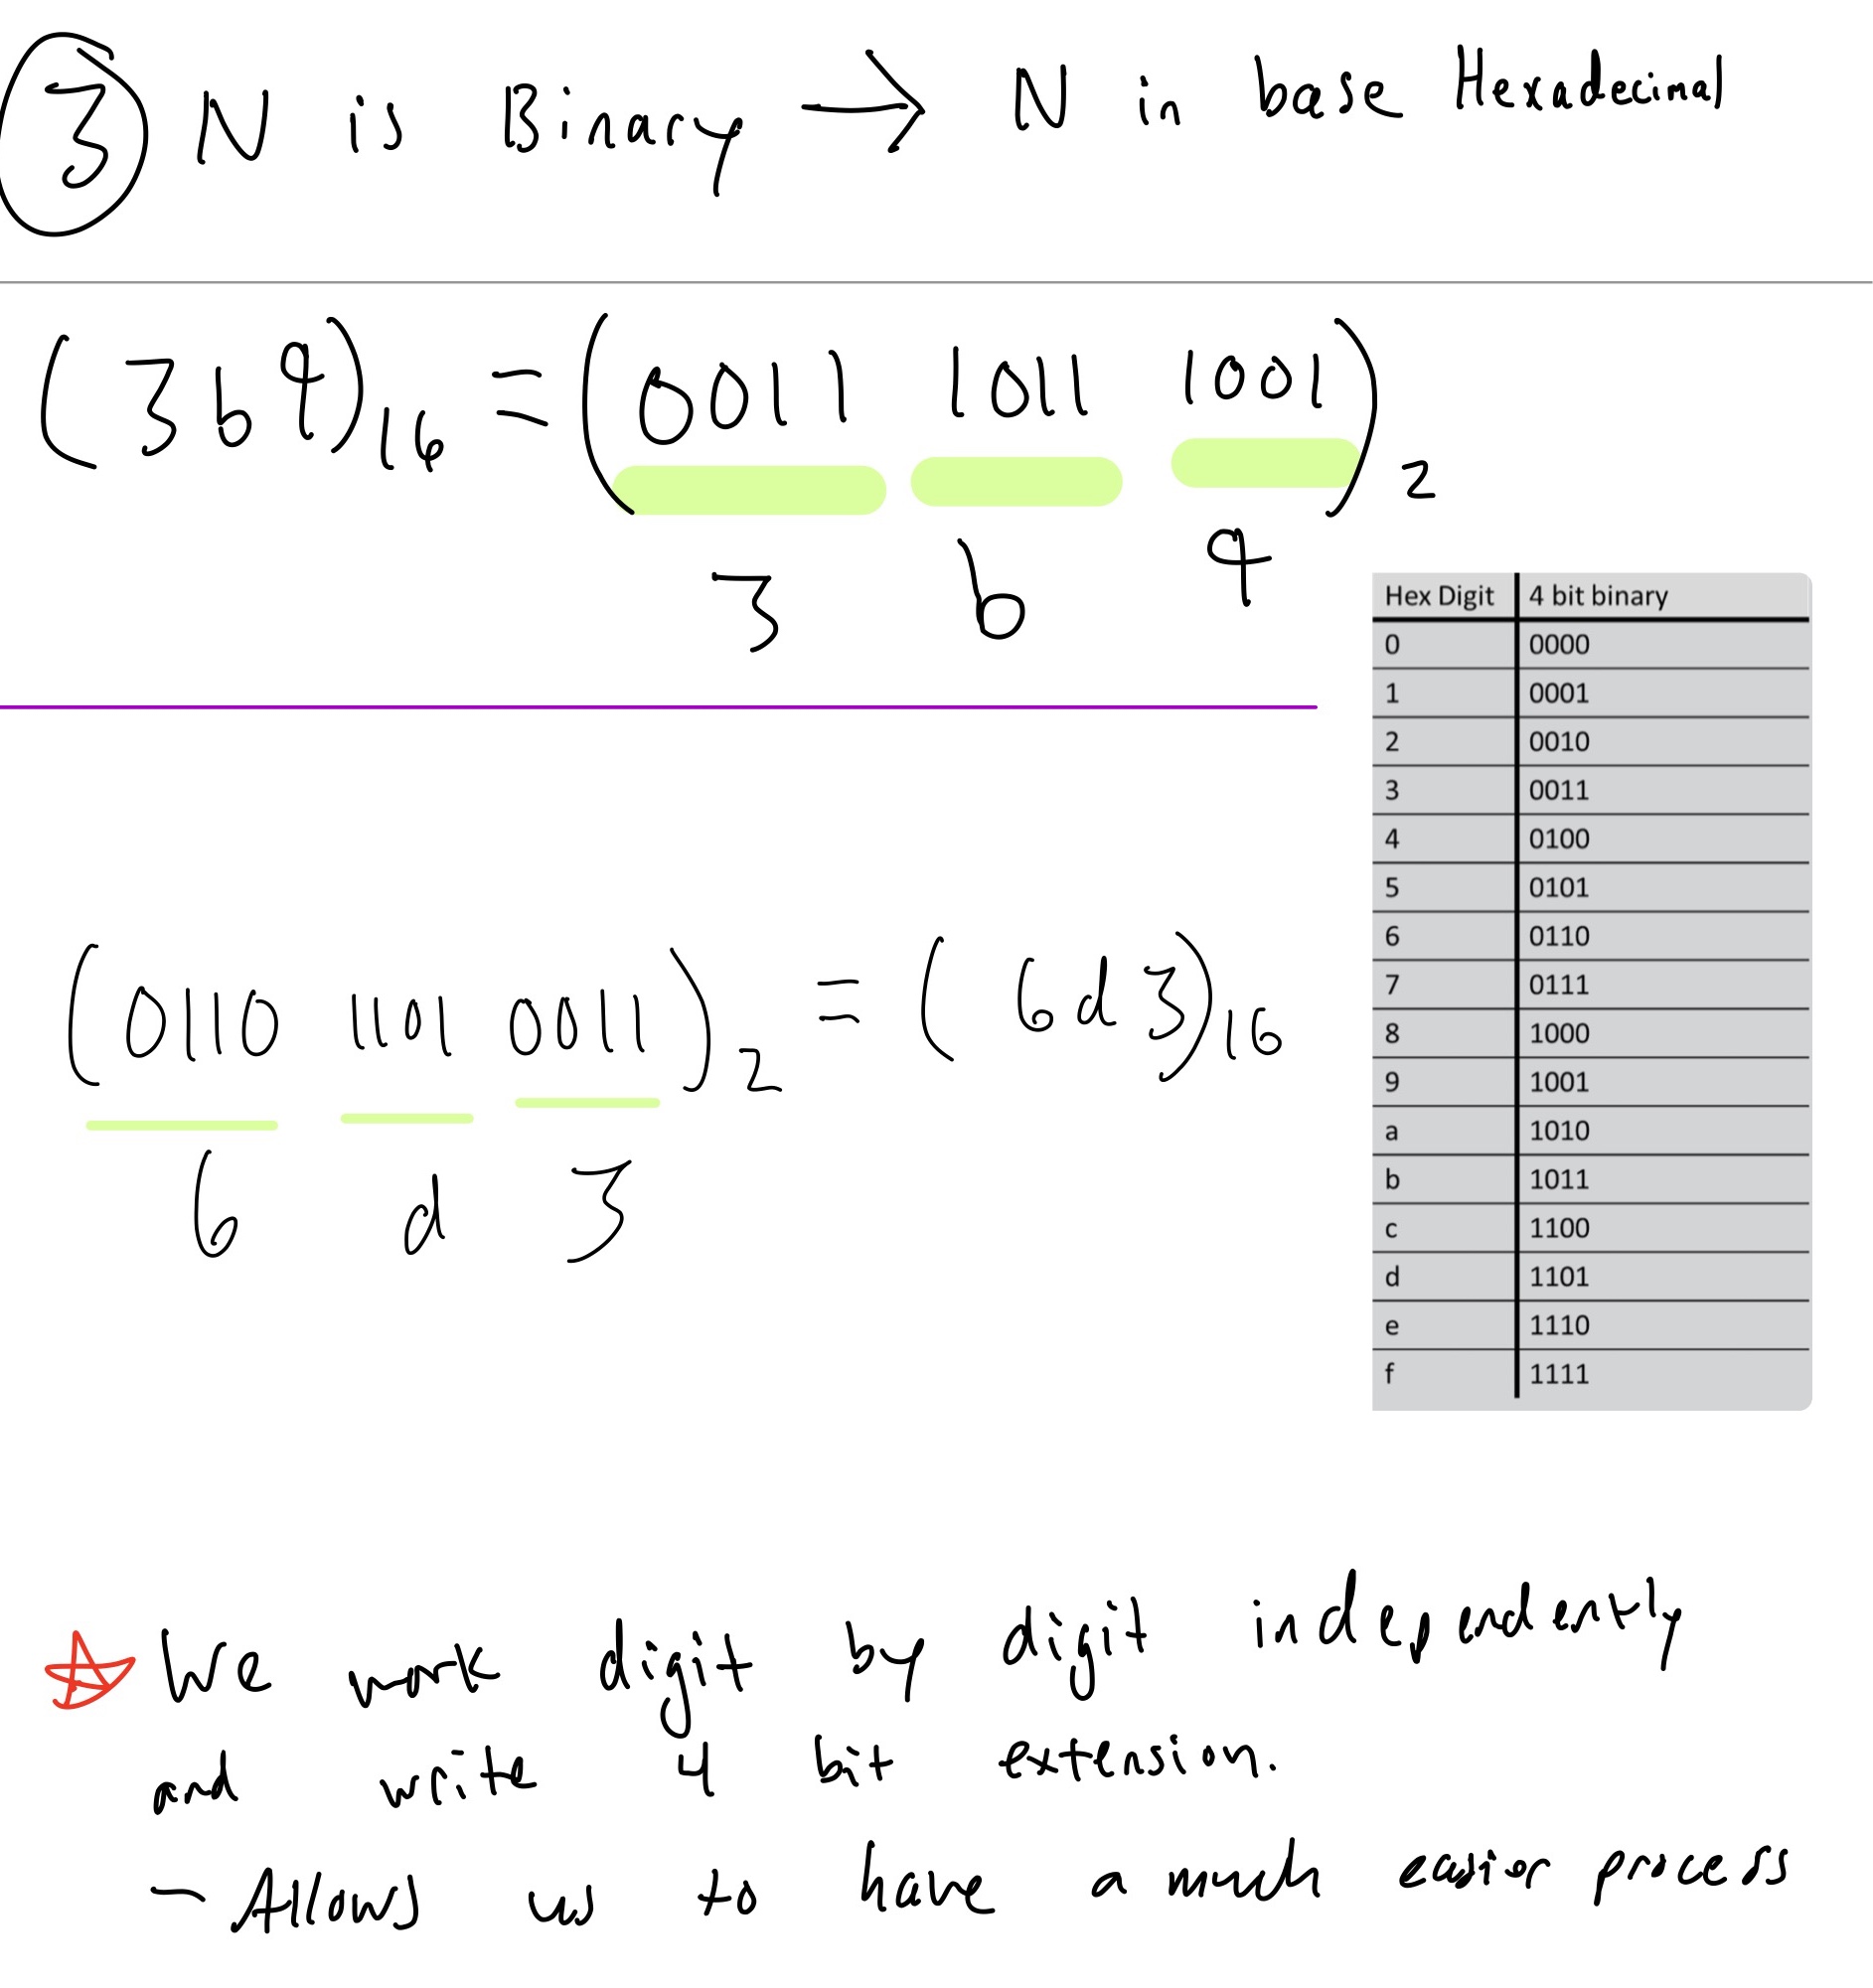 ③ N is Binary → N in base Hexadecimal
(3b9)16 = (0011 1011 1001)2
3 b 9
Hex Digit 4 bit binary
0 0000
1 0001
2 0010
3 0011
4 0100
5 0101
6 0110
7 0111
8 1000
9 1001
a 1010
b 1011
c 1100
d 1101
e 1110
f 1111
(0110 1101 0011)2 = (6d3)16
6 d 3
We work digit by digit independently
and write 4 bit extension.
- Allows us to have a much easier process